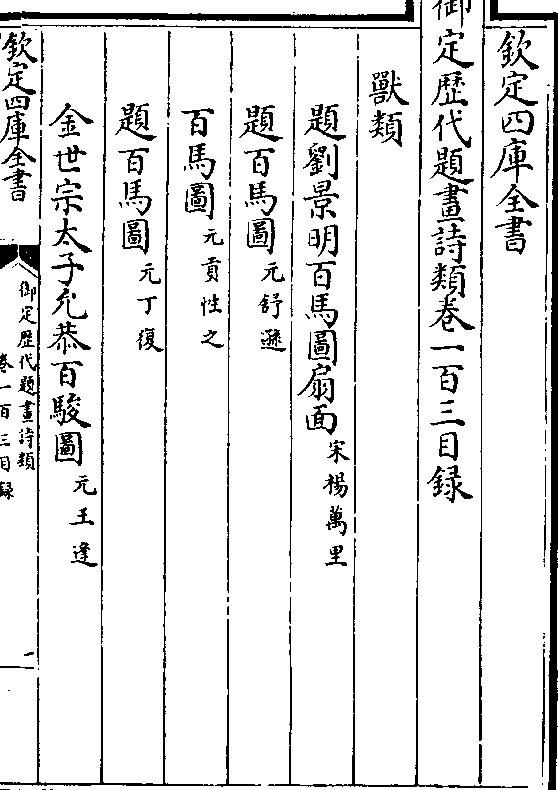 欽定四庫全書
御定歷代題畫詩類卷一百三目録
獸類
題劉景明百馬圖扇面 宋楊萬里
題百馬圖 元舒遜
百馬圖 元貢性之
題百馬圖 元丁復
金世宗太子允恭百駿圖 元王逢
欽定四庫全書
御定歷代題畫詩類
卷一百三目録
一